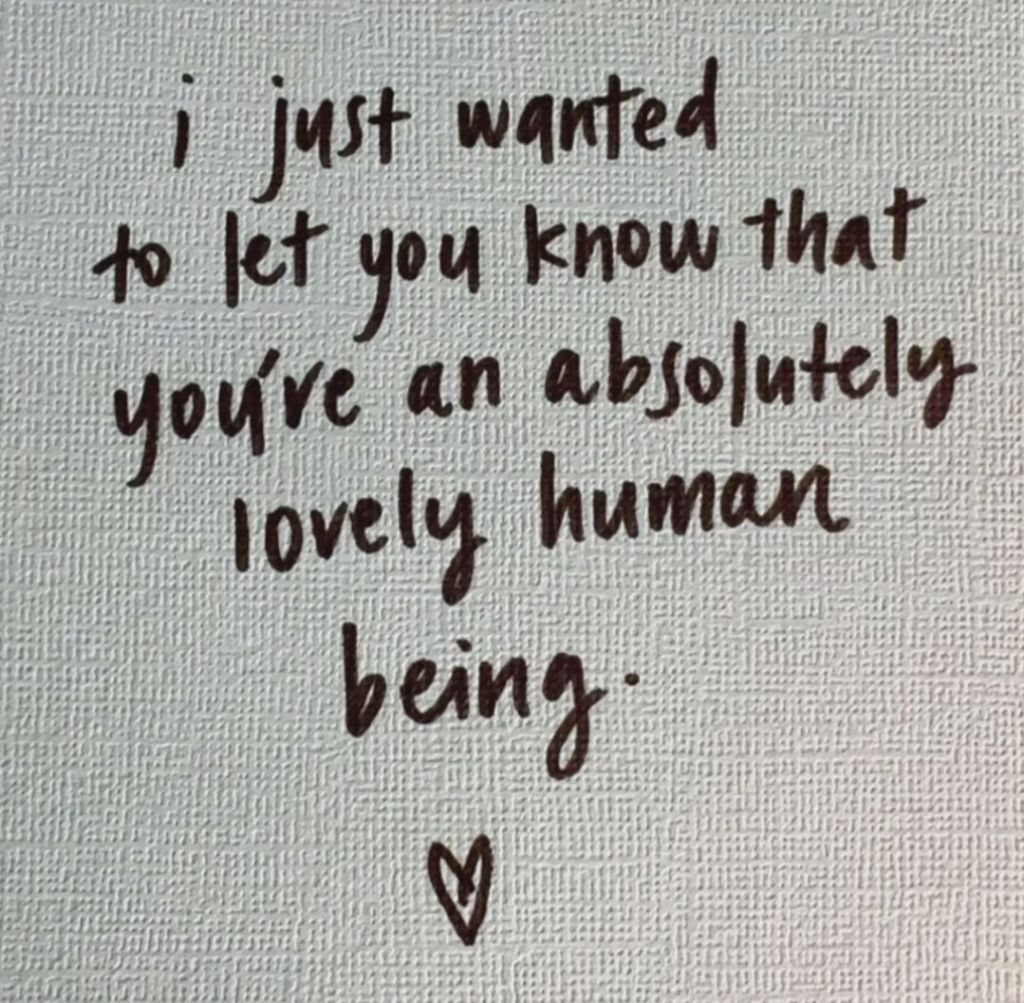 i just wanted
to let you know that
you're an absolutely
lovely human
being.